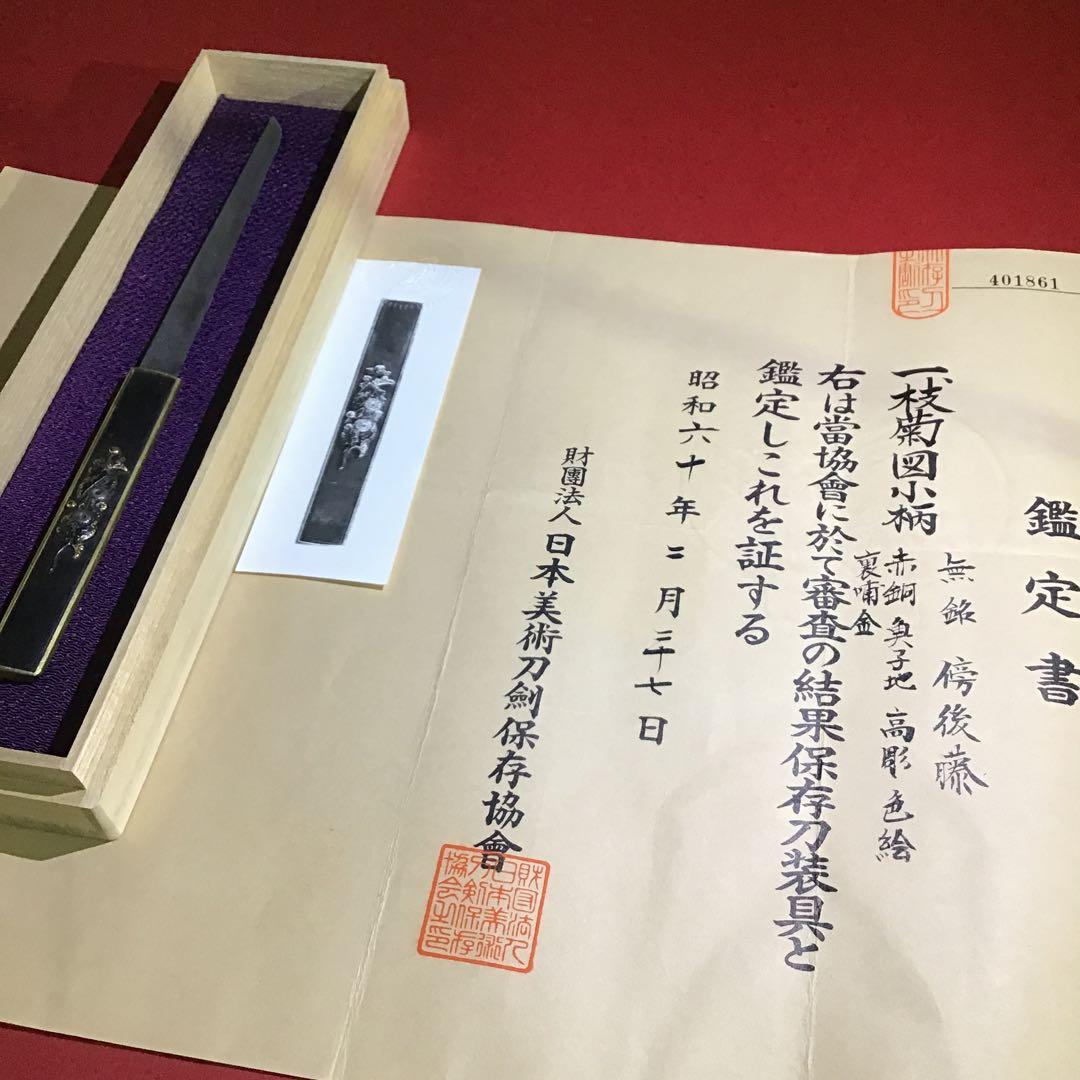 401861
鑑定書
一、枝菊図小柄
無銘 傍後藤
赤銅魚子地高彫色絵
裏哺金
右は當協會に於て審査の結果保存刀装具と
鑑定しこれを証する
昭和六十年二月二十七日
財團法人日本美術刀劍保存協會
財団法人
日本美術
刀剣保存
協会之印